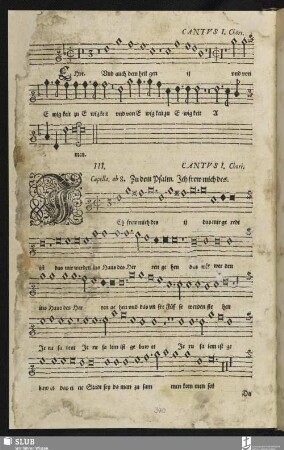 CANTVS I. Chori.
Ehre. Und auch dem heil gen ij und von
E wig keit zu E wig keit und von E wig keit zu E wig keit A
men.
III. CANTVS I. Chori,
Capella. ab 8. Zu dem Psalm. Ich frew mich des.
Ich frew mich des ij das mir ge redt
ist das wir werden ins Haus des Her ren ge hen das wir wer den
ins Haus des Her ren ge hen und das un sre Füss se werden ste hen
Je ru sa lem Je ru sa lem ist ge baw et Je ru sa lem ist ge
baw et das ei ne Stadt sey da man zu sam men kom men sol
Da
SLUB